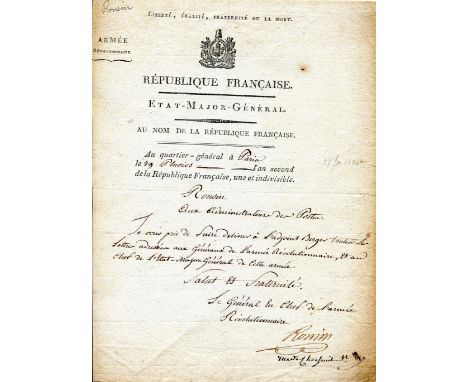 Ronsin
LIBERTÉ, ÉGALITÉ, FRATERNITÉ OU LA MORT.
ARMÉE
RÉVOLUTIONNAIRE
RÉPUBLIQUE FRANÇAISE.
ETAT-MAJOR-GÉNÉRAL.
AU NOM DE LA RÉPUBLIQUE FRANÇAISE.
Au quartier-général à Paris
le 29 Pluvios l'an second
de la République Française, une et indivisible.
Ronsin
Aux Administrateurs des Postes
Je vous prie de faire délivrer à l'adjoint Berger toutes les
lettres adressées aux Généraux de l'armée Révolutionnaire, et au
chef de l'Etat-Major Général de cette armée.
Salut et Fraternité.
Le Général en Chef de l'armée
Révolutionnaire
Ronsin
rue de Choiseul n°